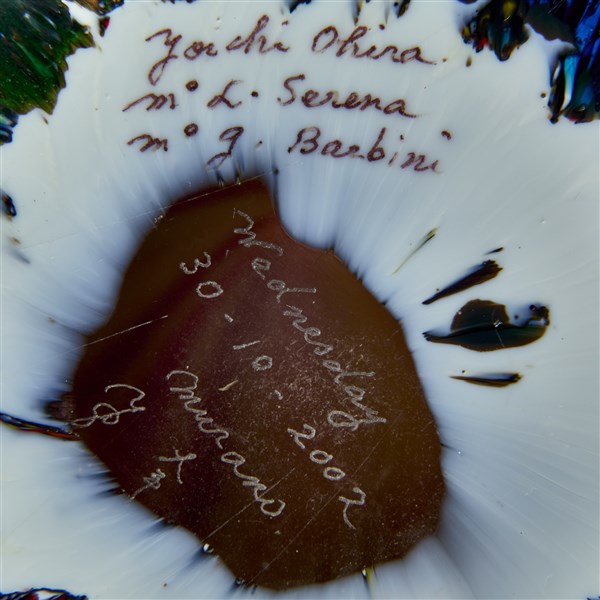 Yoichi Ohira
mº L. Serena
mº g. Barbini
Wednesday
30-10-2002
murano